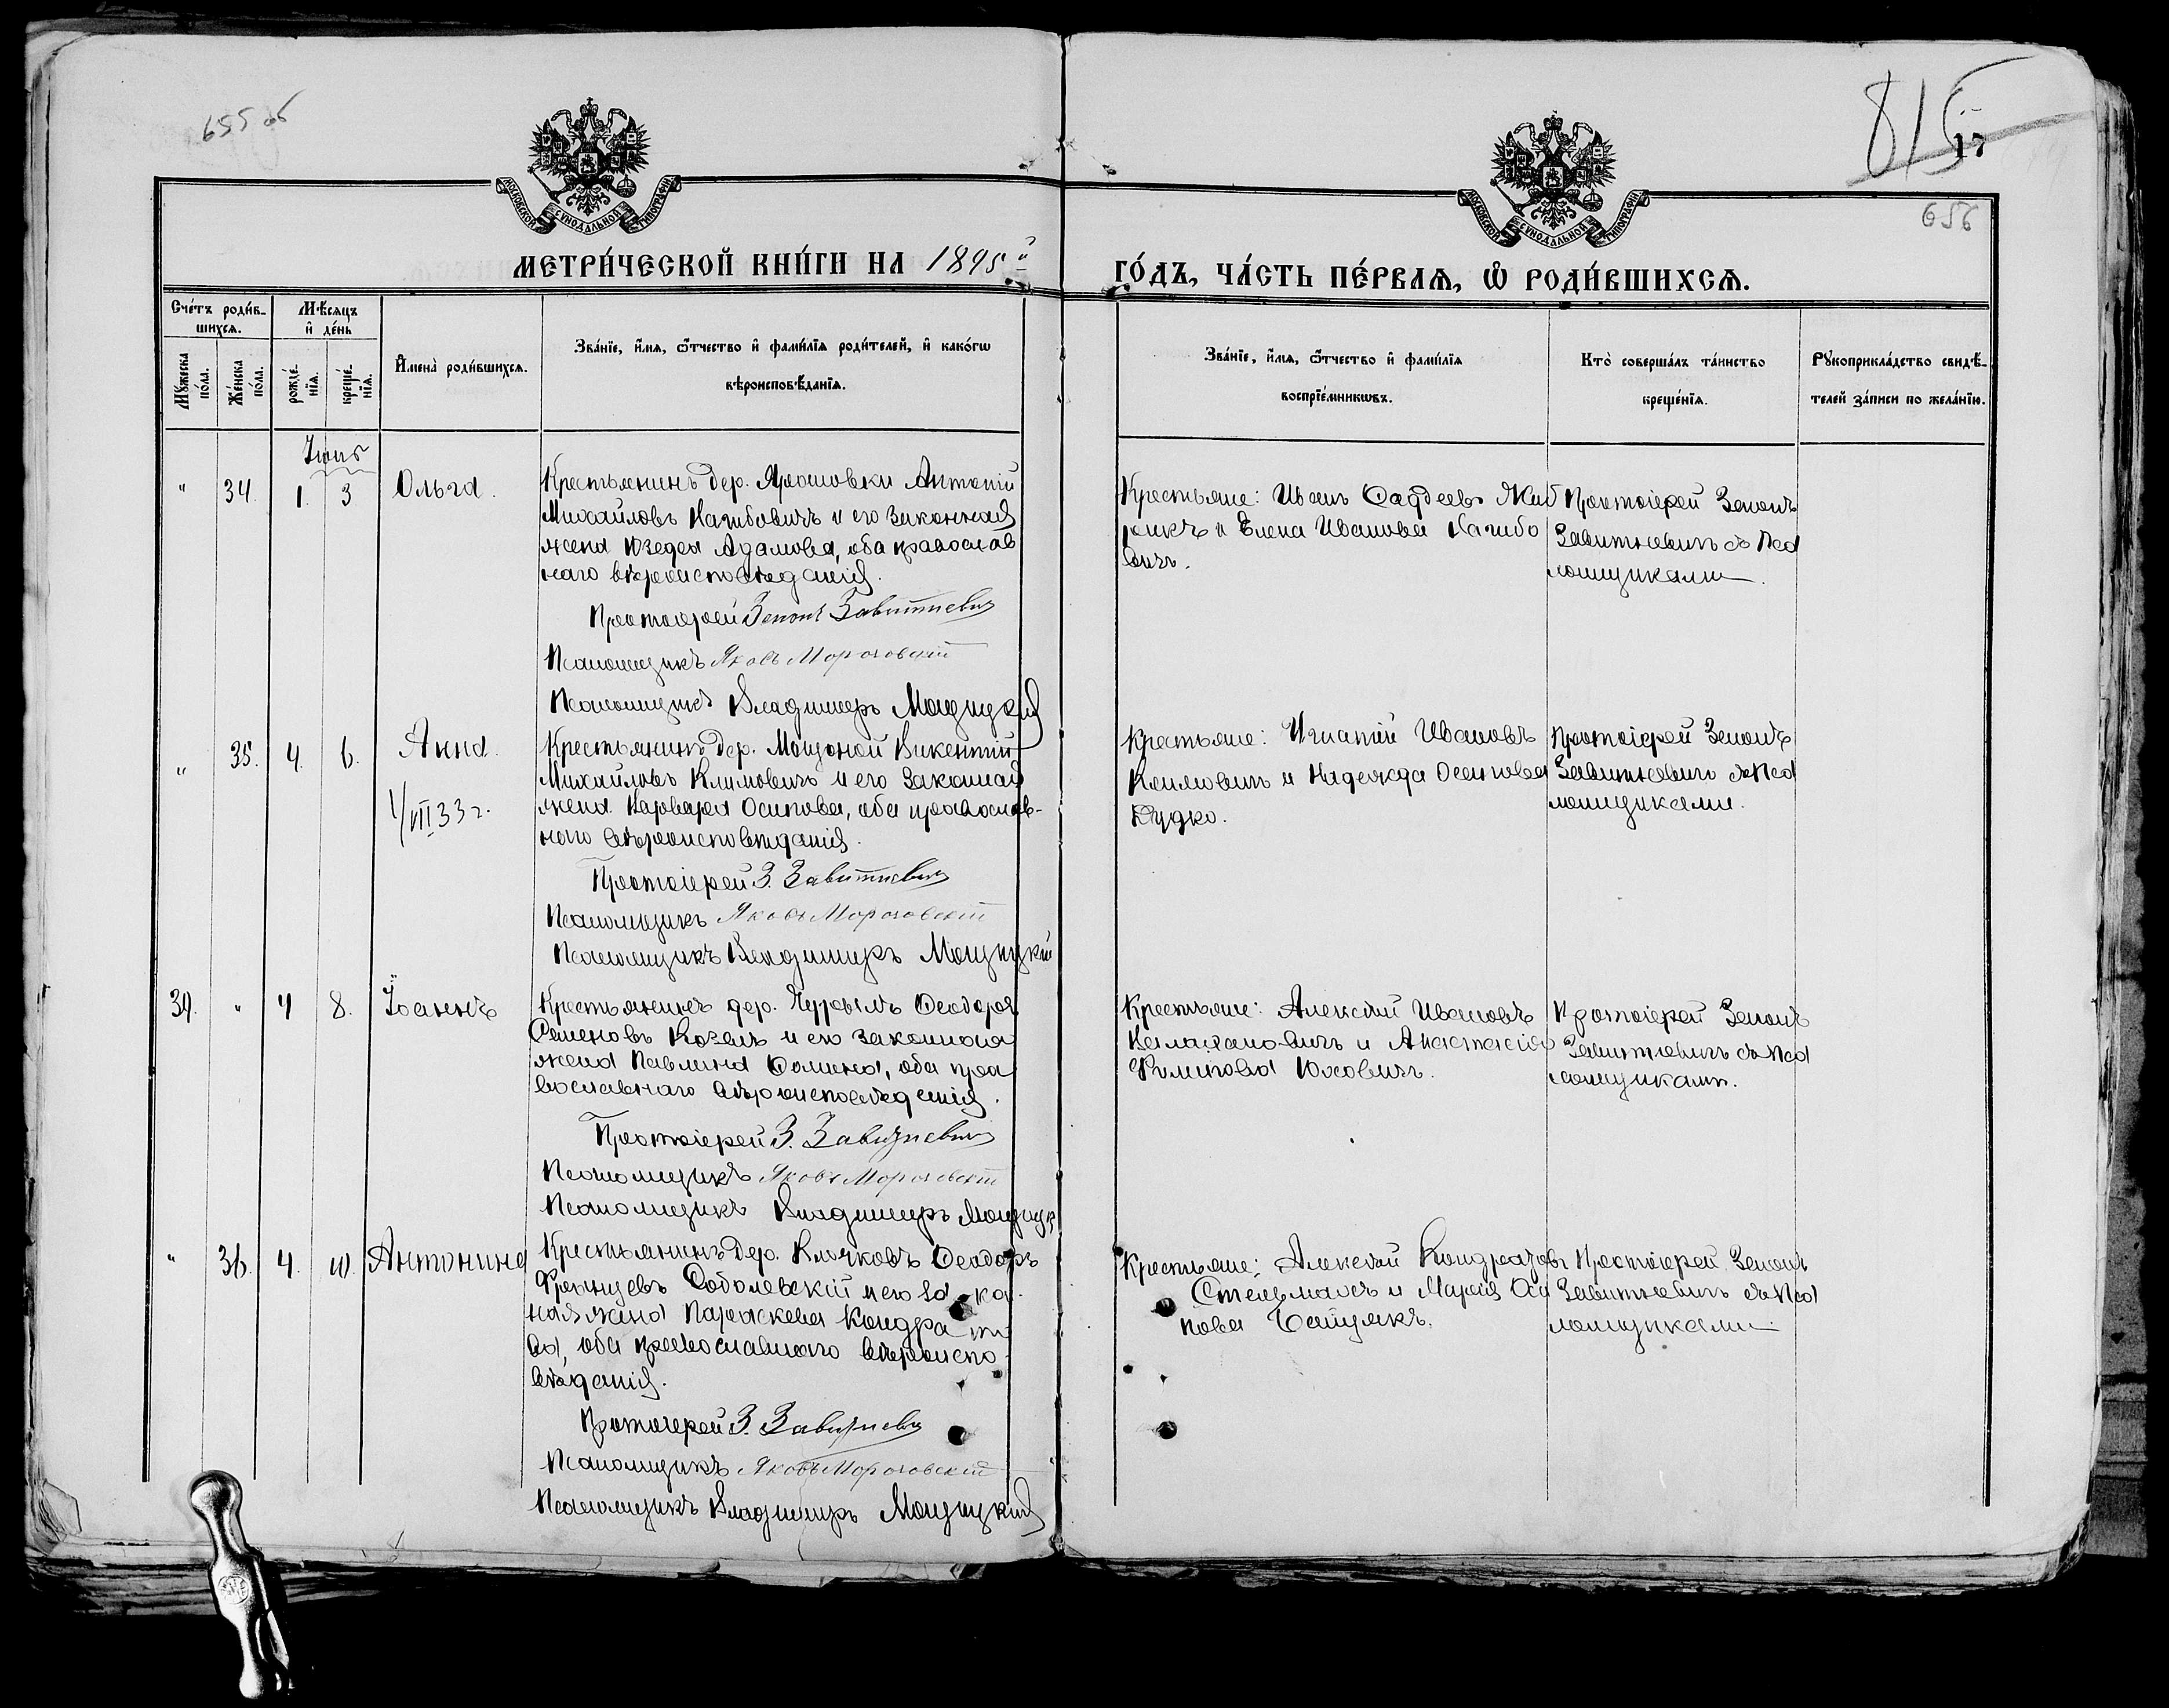 655 об
815
17
656
МОСКОВСКОЙ СѴНОДАЛЬНОЙ ТИПОГРАФІИ
МОСКОВСКОЙ СѴНОДАЛЬНОЙ ТИПОГРАФІИ
МЕТРИ́ЧЕСКОЙ КНИ́ГИ НА 1895й
ГО́ДЪ, ЧА́СТЬ ПЕ́РВАѦ, Ѡ҆ РОДИ́ВШИХСѦ.
Сче́тъ роди́в-
шихсѧ.
Мѣ́сѧцъ
и҆ де́нь
Мꙋ́жеска
по́ла.
Же́нска
по́ла.
рожде́-
нїѧ.
креще́-
нїѧ.
И҆мена̀ роди́вшихсѧ.
Зва́нїе, и҆́мѧ, ѻ҆́тчество и҆ фами́лїѧ роди́телей, и҆ како́гѡ
вѣроисповѣ́данїѧ.
Зва́нїе, и҆́мѧ, ѻ҆́тчество и҆ фами́лїѧ
воспрїе́мникѡвъ.
Кто̀ соверша́лъ та́инство
креще́нїѧ.
Рꙋкоприкла́дство свидѣ́-
телей за́писи по жела́нїю.
" 34. 1. 3 Ольга.
Крестьянинъ дер. Ярошовки Антоній
Михайловъ Кагибовичъ и его законная
жена Адамова, оба православ
наго вѣроисповѣданія.
Протоіерей Зенонъ Завитневичъ
Псаломщикъ Яковъ Морочовскій
Псаломщикъ Владимиръ Мощицкій
Крестьяне: Иванъ
и Елена Иванова Кагибо
вичъ.
Протоіерей Зенонъ
Завитневичъ съ Пса
ломщиками.
" 35. 4. 6. Анна.
1/VII 33 г.
Крестьянинъ дер. Мощоной Викентій
Михайловъ Климовичъ и его законная
жена Варвара Осипова, оба православ-
наго вѣроисповѣданія.
Протоіерей З. Завитневичъ
Псаломщикъ Яковъ Морочовскій
Псаломщикъ Владимиръ Мощицкій
Крестьяне: Игнатій Ивановъ
Климовичъ и Надежда Осипова
Дудко.
Протоіерей Зенонъ
Завитневичъ съ Пса
ломщиками.
39. " 4 8. Іоаннъ
Крестьянинъ дер. Ѳеодоръ
Семеновъ Козелъ и его законная
жена Павлина Ѳомина, оба пра
вославнаго вѣроисповѣданія.
Протоіерей З. Завитневичъ
Псаломщикъ Яковъ Морочовскій
Псаломщикъ Владимиръ Мощицк
Крестьяне: Алексѣй Ивановъ
и Анастасія
Филипова Юховичъ.
Протоіерей Зенонъ
Завитневичъ съ Пса
ломщиками.
" 36. 4. 10. Антонина
Крестьянинъ дер. Клочковъ Ѳеодоръ
Францевъ Соболевскій и его за кон
ная жена Параскева Кондрато
ва, оба православнаго вѣроиспо-
вѣданія.
Протоіерей З. Завитневичъ
Псаломщикъ Яковъ Морочовскій
Псаломщикъ Владимиръ Мощицкій
Крестьяне: Алексѣй Кондратовъ
Стельмахъ и Марія Оси
пова
Протоіерей Зенонъ
Завитневичъ съ Пса
ломщиками